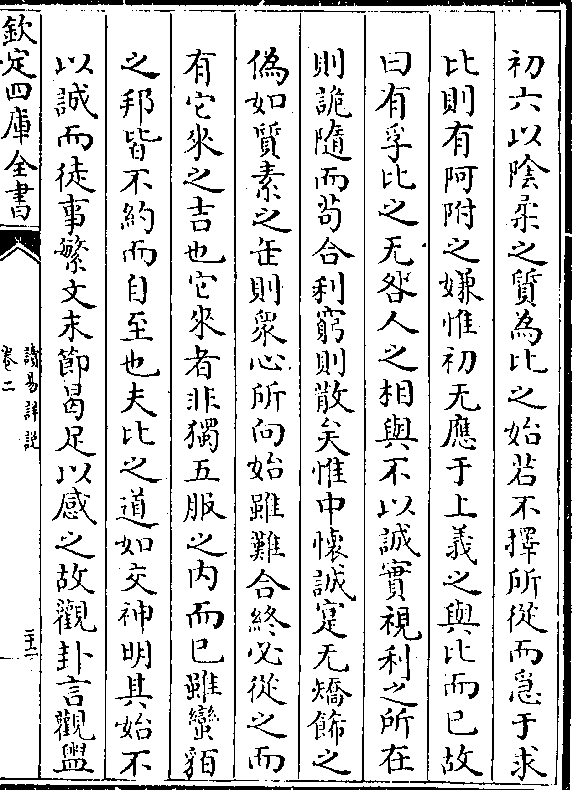 初六以陰柔之質為比之始若不擇所從而急于求
比則有阿附之嫌惟初无應于上義之與比而已故
曰有孚比之无咎人之相與不以誠實視利之所在
則詭隨而苟合利窮則散矣惟中懷誠寔无矯飾之
偽如質素之缶則衆心所向始雖難合終必從之而
有它來之吉也它來者非獨五服之内而已雖蠻貊
之邦皆不約而自至也夫比之道如交神明其始不
以誠而徒事繁文末節曷足以感之故觀卦言觀盥
欽定四庫全書
讀易詳説
卷二
二十二